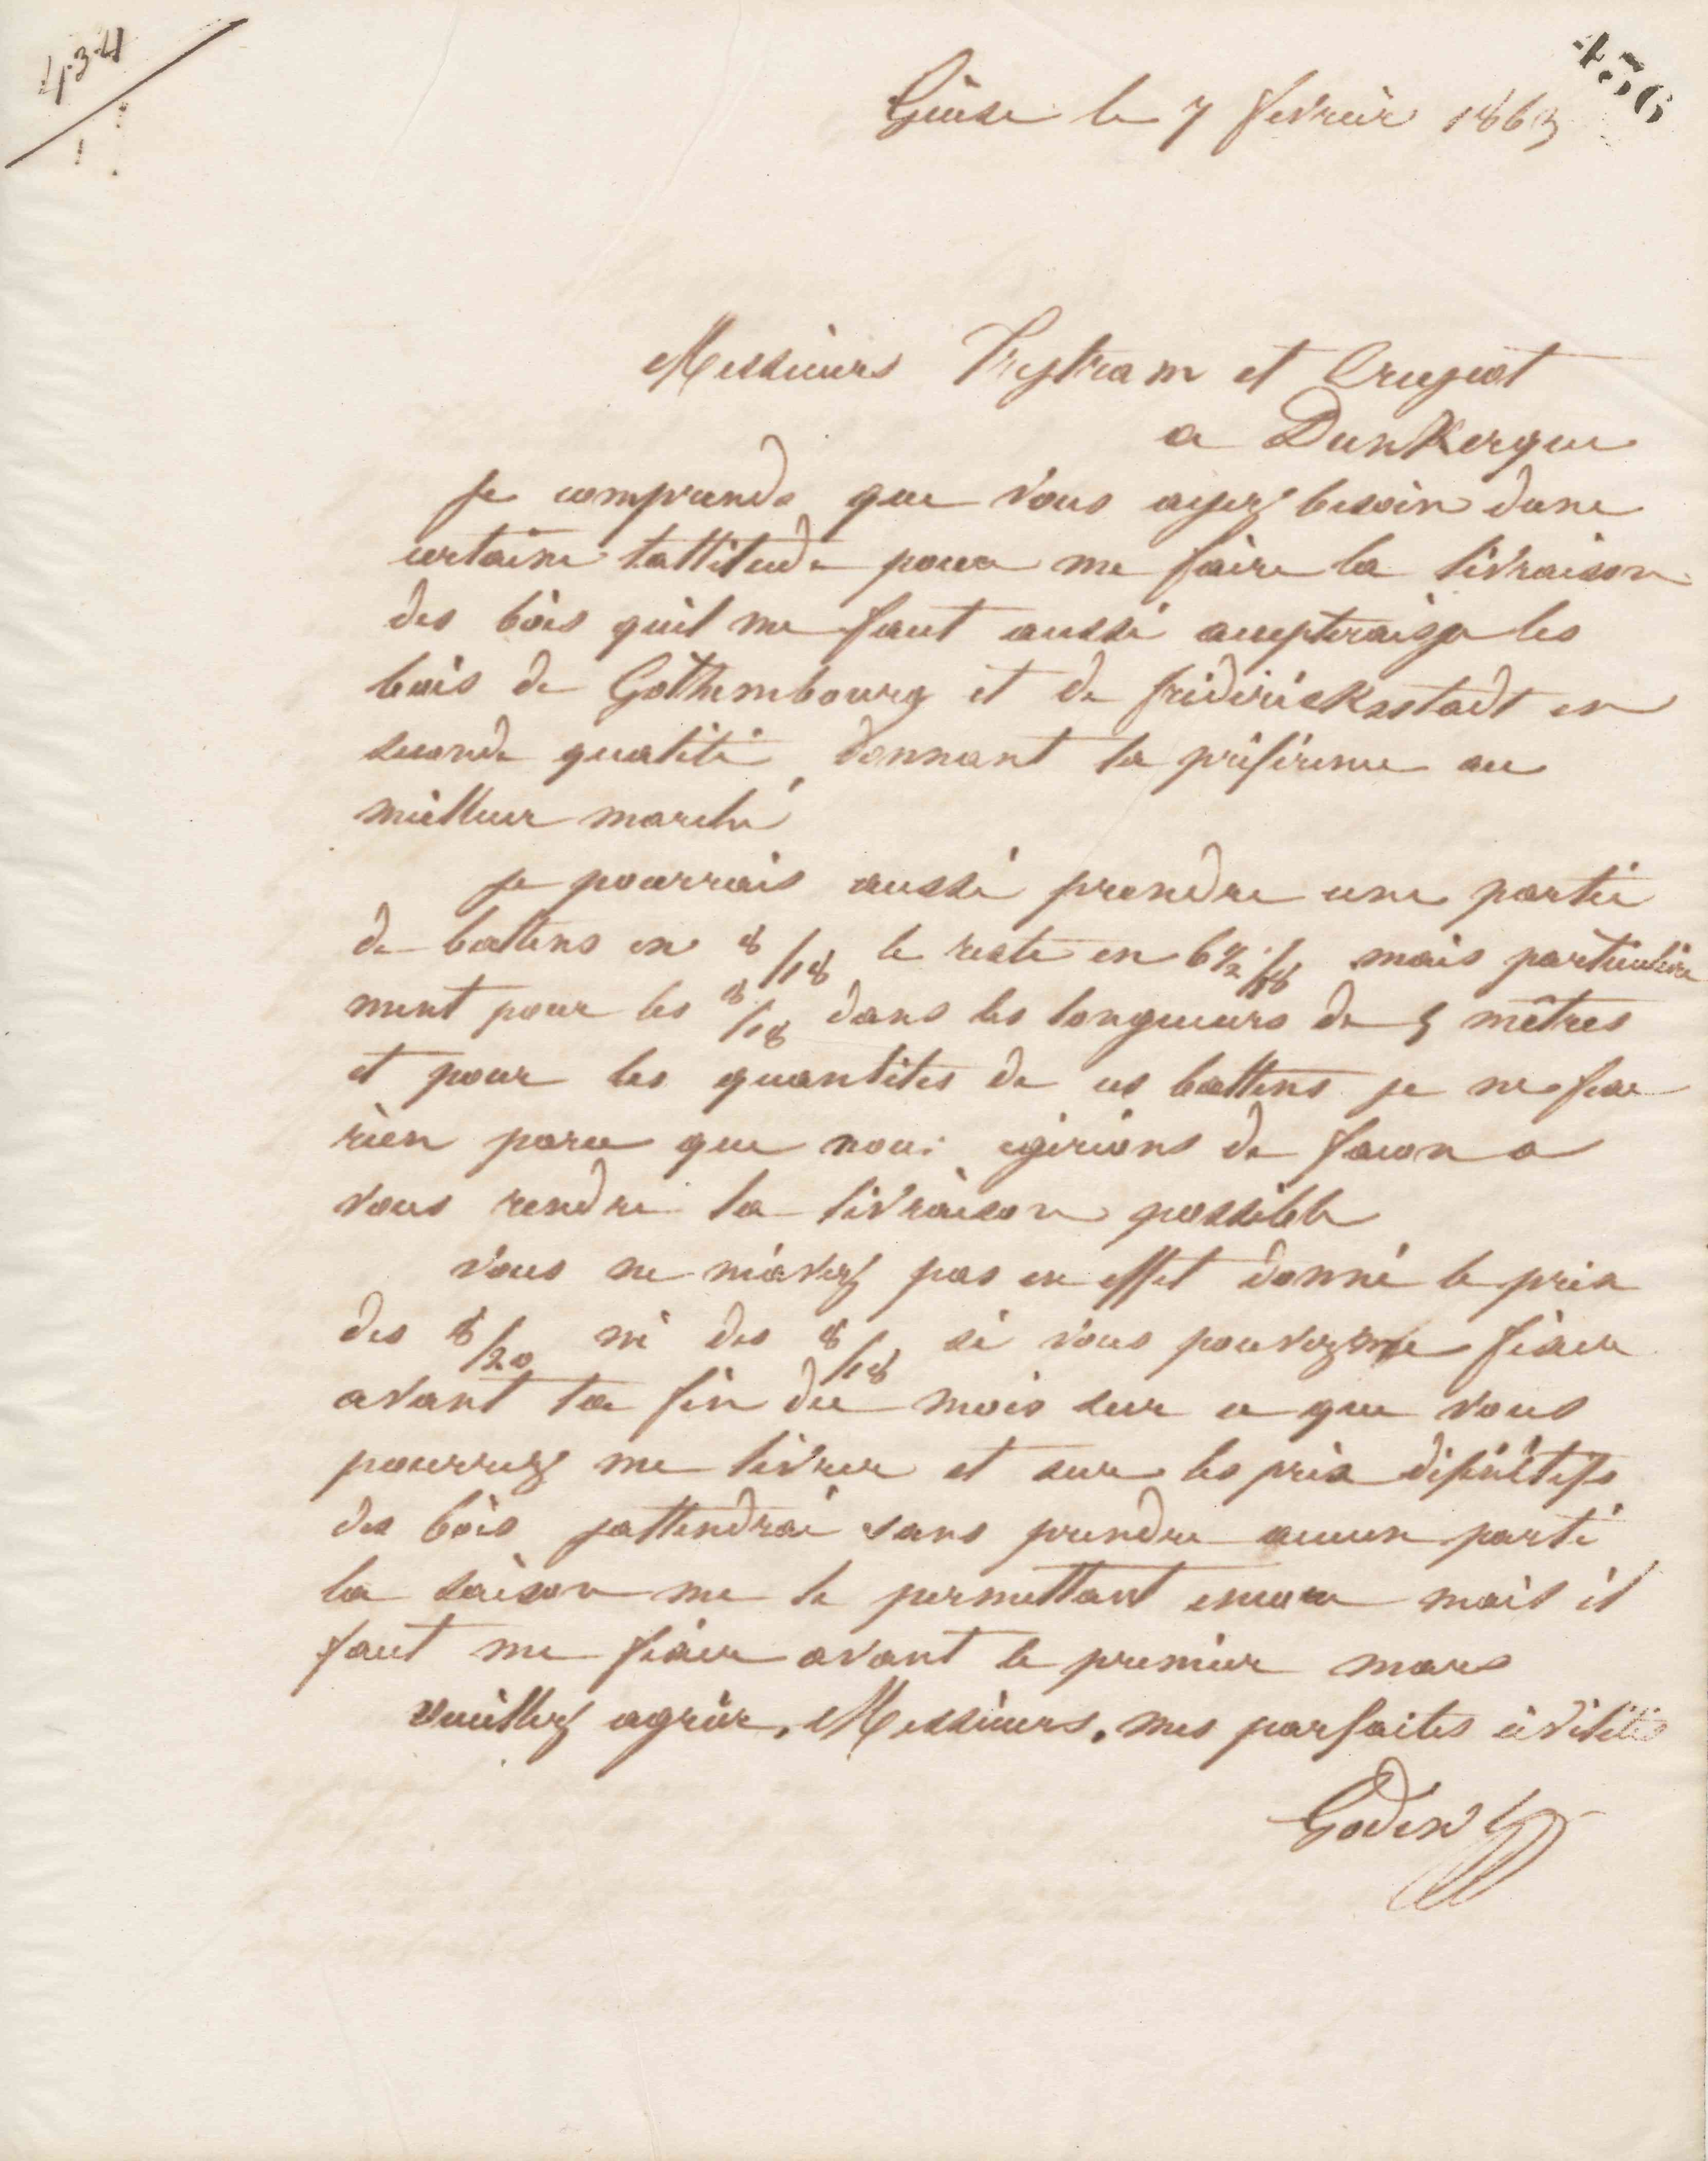 434
1
456
Guise le 7 fevrier 1863
Messieurs Trystram et Crujeot
a Dunkerque
je comprends que vous ayez besoin dune
certaine lattitude pour me faire la livraison
des bois quil me faut aussi accepteraisje les
bois de Gothembourg et de frédérickstadt en
seconde qualité, donnant la préférence au
meilleur marché
je pourrais aussi prendre une partie
de battens en 8/18 le reste en 6 1/2/18 mais particulière
ment pour les 8/18 dans les longueurs de 5 mêtres
et pour les quantités de ces battens je ne fixe
rien parce que nous agirions de facon a
vous rendre la livraison possible
vous ne m'avez pas en effet donné le prix
des 8/20 ni des 8/18 si vous pouvez me fixer
avant la fin du mois sur ce que vous
pourrez me livrer et sur les prix définitifs
des bois jattendrai sans prendre aucun parti
la saison me le permettant encore mais il
faut me fixer avant le premier mars
veuillez agréer, Messieurs, mes parfaites civilités
Godin